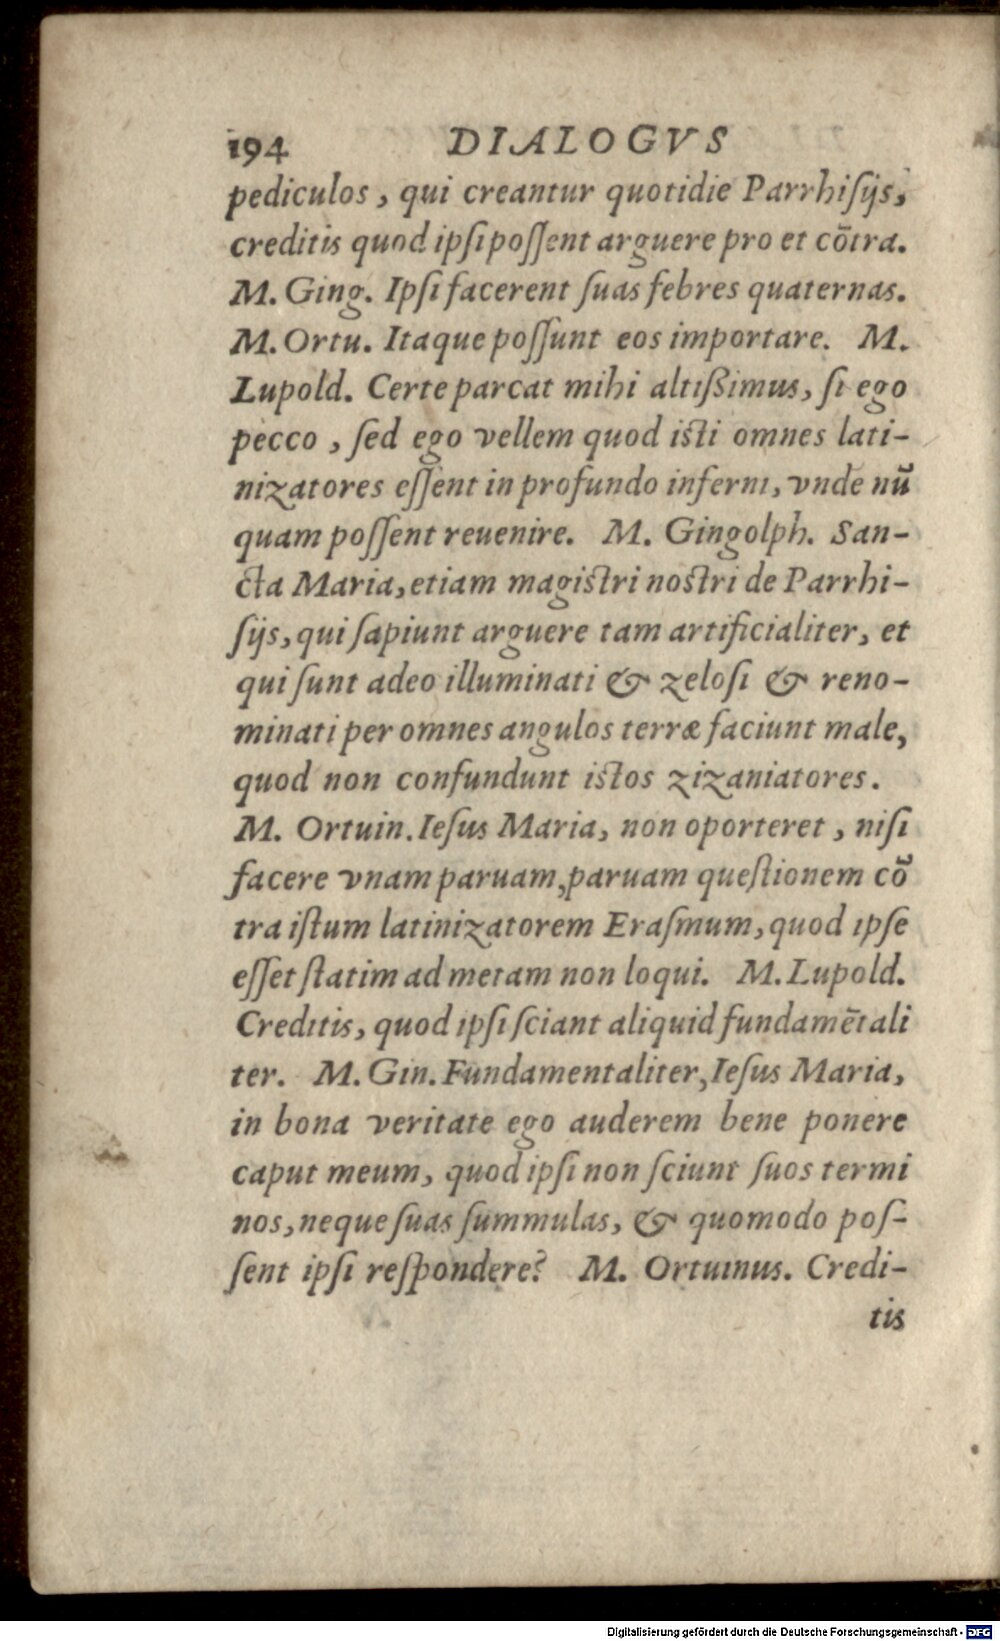 194 DIALOGVS
pediculos, qui creantur quotidie Parrhiſijs,
creditis quod ipſi poſſent arguere pro et cõtra.
M. Ging. Ipſi facerent ſuas febres quaternas.
M. Ortu. Itaque poſſunt eos importare. M.
Lupold. Certe parcat mihi altißimus, ſi ego
pecco, ſed ego vellem quod isti omnes lati-
nizatores eſſent in profundo inferni, vnde nū
quam poſſent reuenire. M. Gingolph. San-
cta Maria, etiam magistri nostri de Parrhi-
ſijs, qui ſapiunt arguere tam artificialiter, et
qui ſunt adeo illuminati & zeloſi & reno-
minati per omnes angulos terræ faciunt male,
quod non confundunt istos zizaniatores.
M. Ortuin. Ieſus Maria, non oporteret, niſi
facere vnam paruam, paruam queſtionem cō
tra iſtum latinizatorem Eraſmum, quod ipſe
eſſet ſtatim ad metam non loqui. M. Lupold.
Creditis, quod ipſi ſciant aliquid fundamētali
ter. M. Gin. Fundamentaliter, Ieſus Maria,
in bona veritate ego auderem bene ponere
caput meum, quod ipſi non ſciunt ſuos termi
nos, neque ſuas ſummulas, & quomodo poſ-
ſent ipſi reſpondere? M. Ortuinus. Credi-
tis
Digitalisierung gefördert durch die Deutsche Forschungsgemeinschaft - DFG